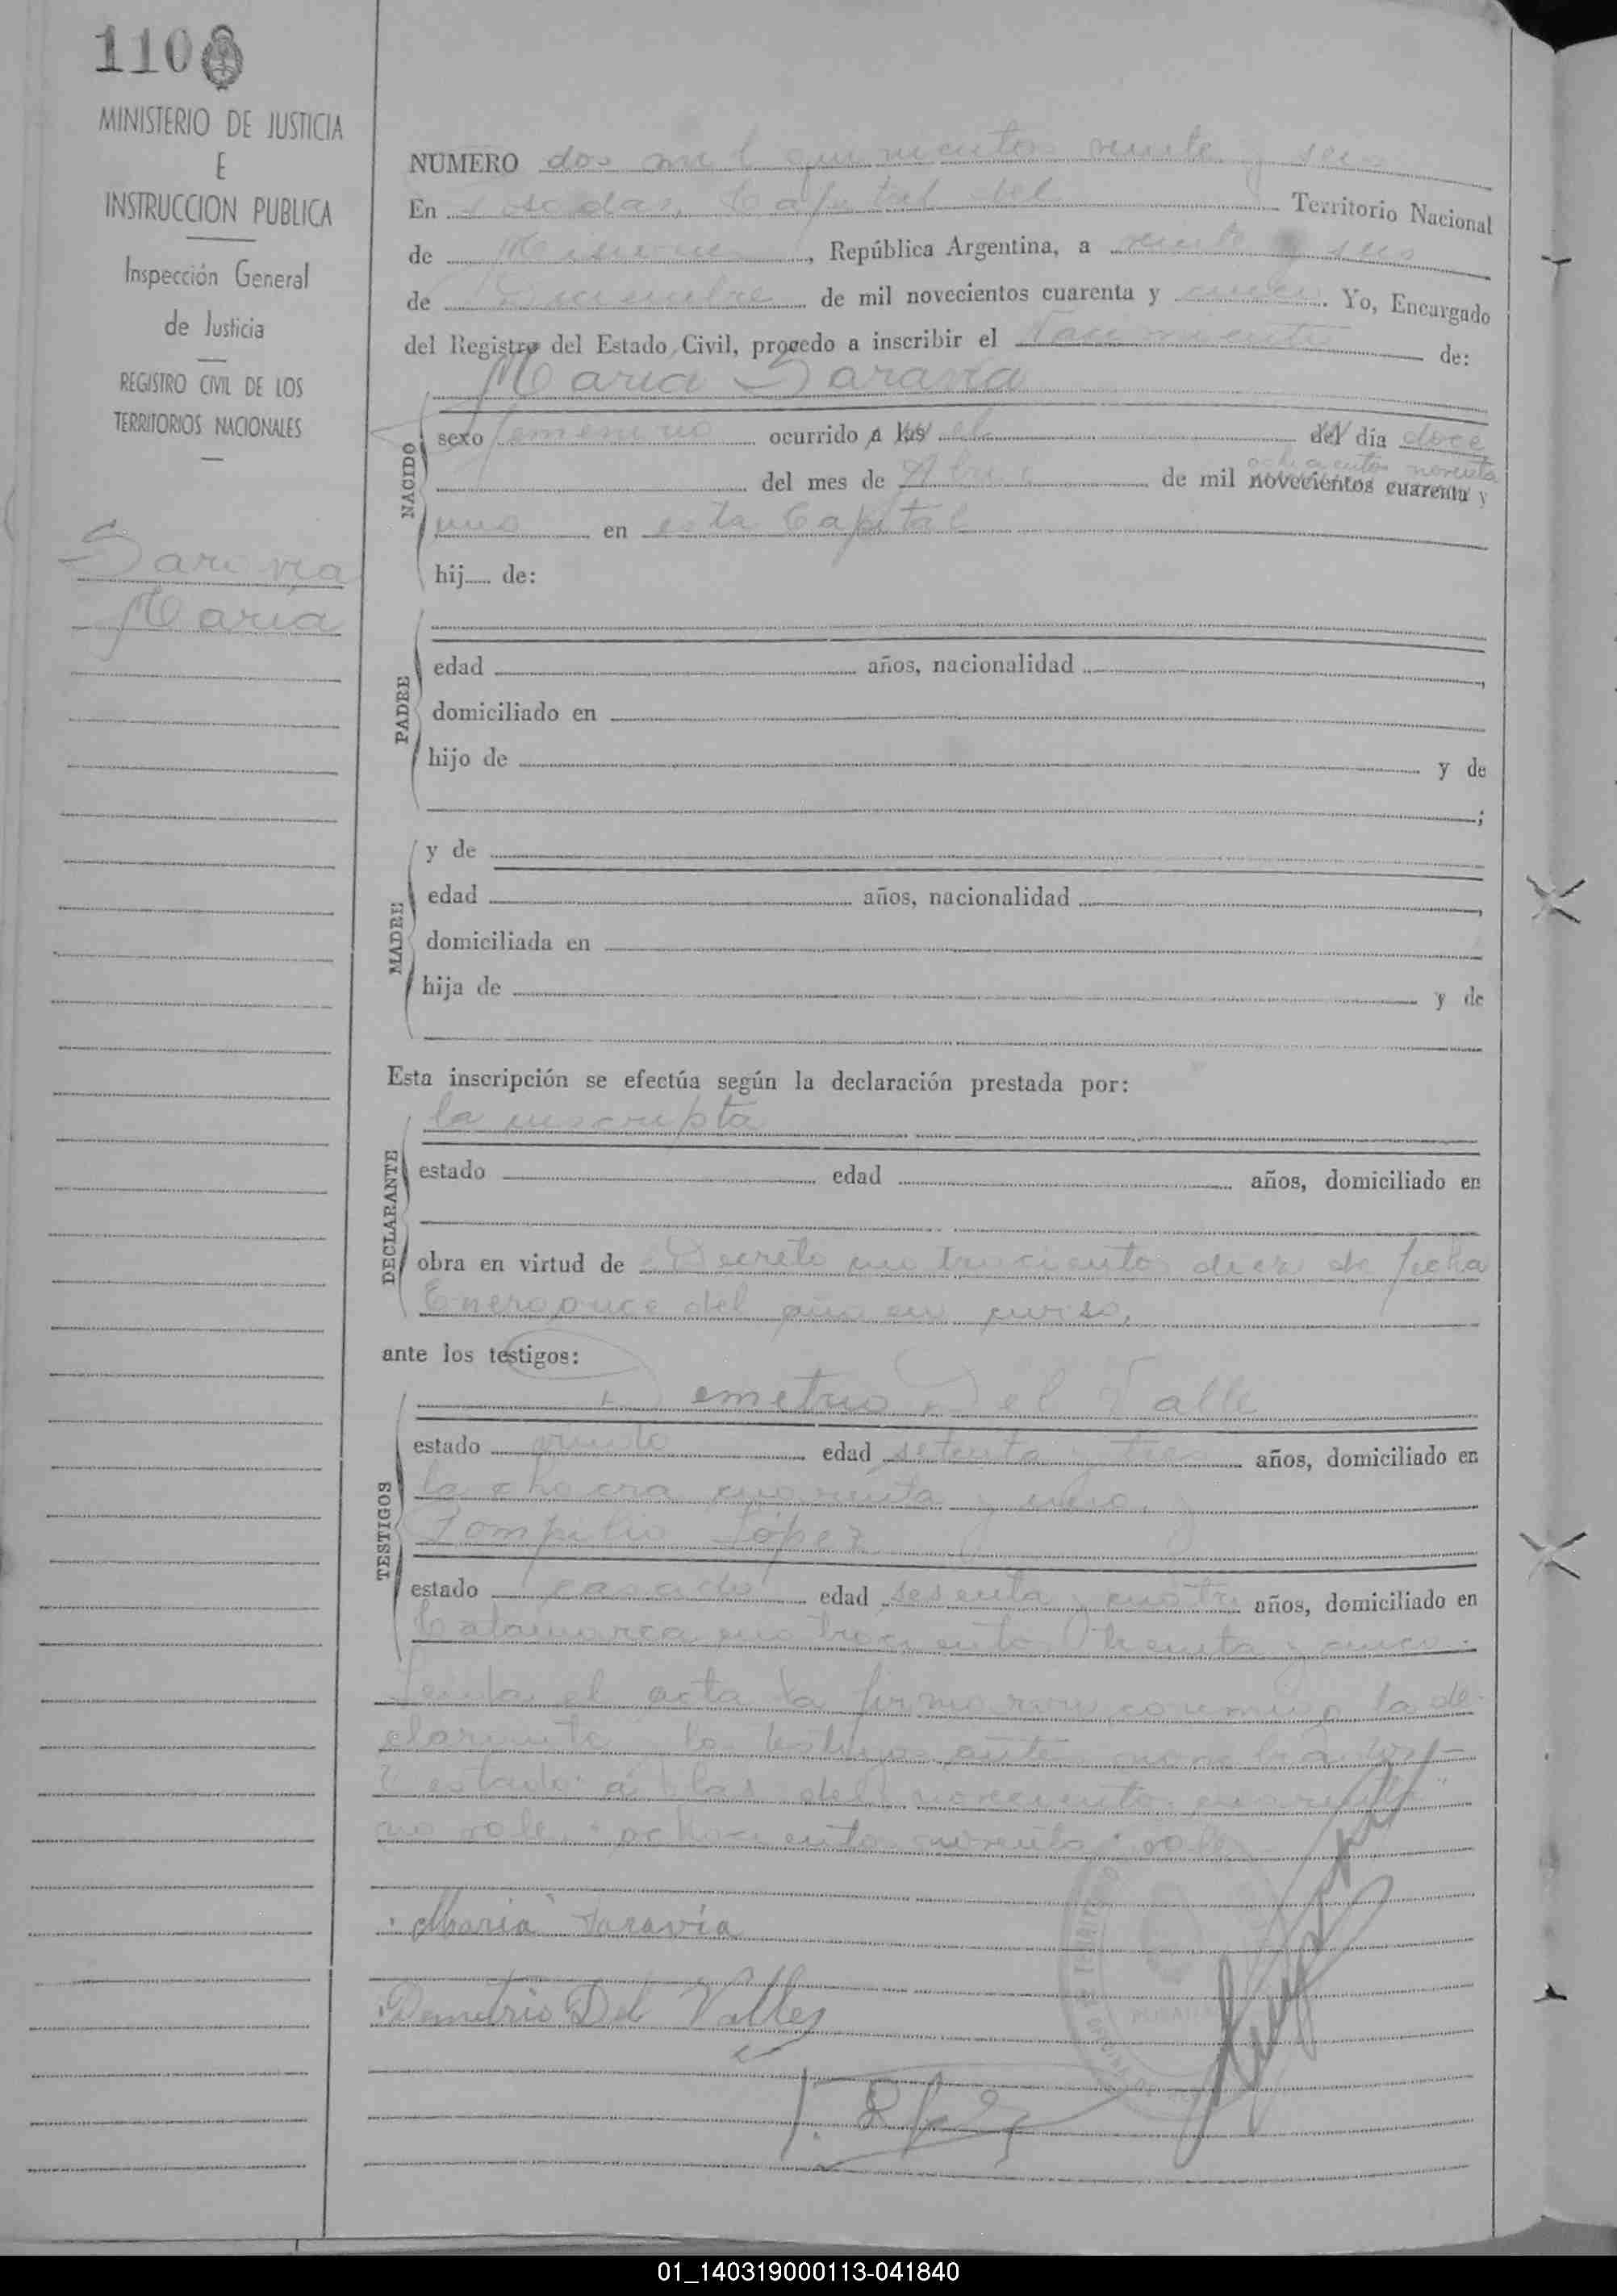 110
MINISTERIO DE JUSTICIA
E
INSTRUCCION PUBLICA
Inspección General
de Justicia
REGISTRO CIVIL DE LOS
TERRITORIOS NACIONALES
Saravia
María
NUMERO dos mil quinientos veinte y seis
En Posadas, Capital del Territorio Nacional
de Misiones, República Argentina, a veinte y seis
de Diciembre de mil novecientos cuarenta y Yo, Encargado
del Registro del Estado Civil, procedo a inscribir el Nacimiento de:
María Saravia
NACIDO
sexo femenino ocurrido a las el del día doce
ochocientos noventa
del mes de Abril de mil novecientos cuarenta y
uno en esta Capital
hij de:
PADRE
edad años, nacionalidad
domiciliado en
hijo de y de
;
MADRE
y de
edad años, nacionalidad
domiciliada en
hija de y de
Esta inscripción se efectúa según la declaración prestada por:
la inscripta
DECLARANTE
estado edad años, domiciliado en
obra en virtud de Decreto cuatrocientos diez de fecha
Enero once del año en curso,
ante los testigos:
TESTIGOS
Demetrio Del Valle
estado viudo edad setenta y tres años, domiciliado en
la chacra cuarenta y uno,
Pompilio López
estado casado edad sesenta y cuatro años, domiciliado en
Catamarca cuatrocientos treinta y cinco.
Leída el acta la firmaron conmigo la de-
clarante y los testigos antes nombrados.-
Testado: a las del novecientos cuarenta"
no vale: ochocientos noventa: vale
María Saravia
Demetrio Del Valle
01_140319000113-041840